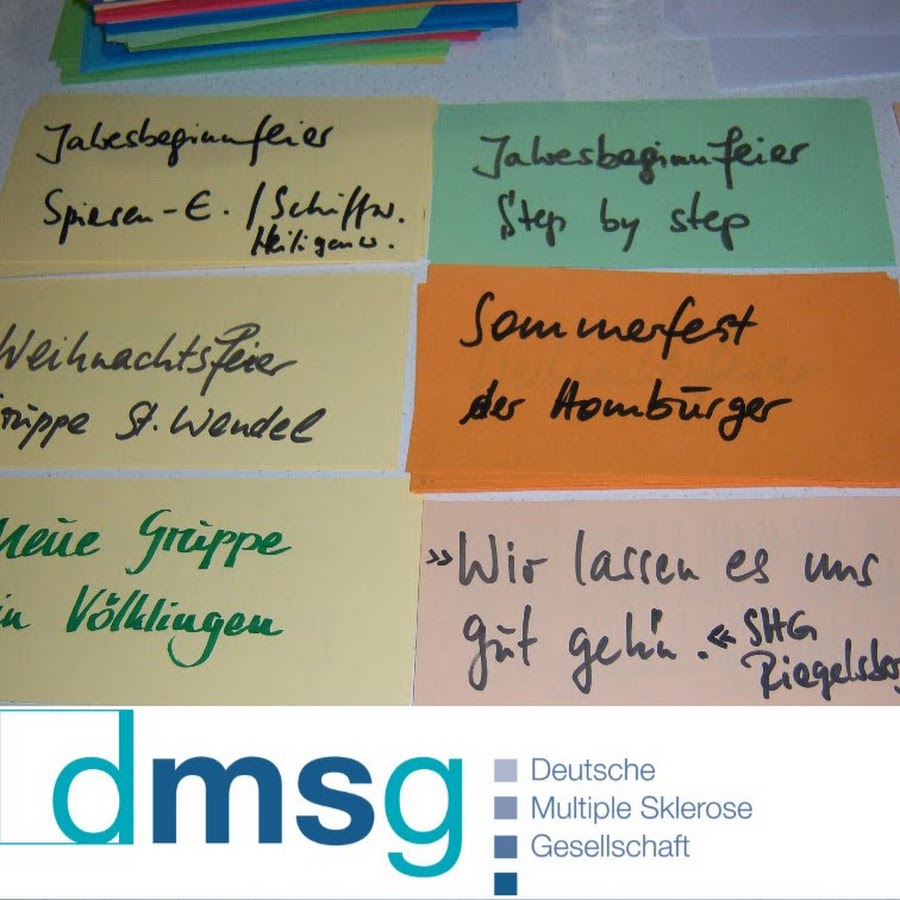 Jahresbeginnfeier
Spiesen-E. / Schiffw.
Heiligenw.
Jahresbeginnfeier
Step by step
Weihnachtsfeier
Gruppe St. Wendel
Sommerfest
der Homburger
Neue Gruppe
in Völklingen
»Wir lassen es uns
gut geh'n.« SHG
Riegelsberg
dmsg
Deutsche
Multiple Sklerose
Gesellschaft